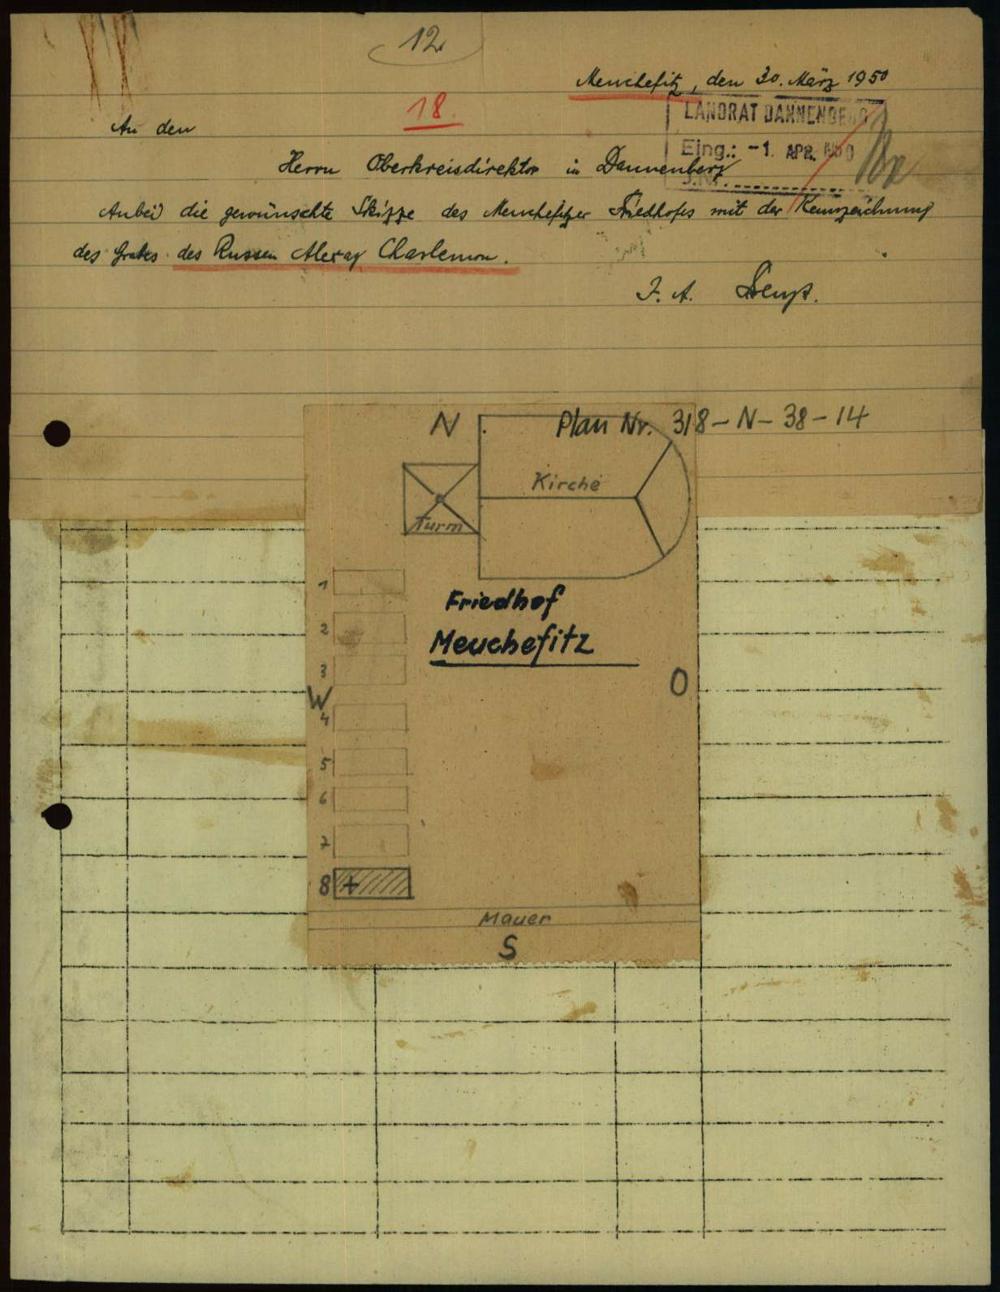 12
Meuchefitz, den 30. März 1950
18.
LANDRAT DANNENBERG
An den
Eing.: -1. APR. 1950
Herrn Oberkreisdirektor in Dannenberg
J.Nr.
Anbei die gewünschte Skizze des Meuchefitzer Friedhofes mit der Kennzeichnung
des Grabes des Russen Alexay Charlemon.
I. A.
N
Plan Nr. 318-N-38-14
Kirche
Turm
1
Friedhof
2
Meuchefitz
3
W
O
4
5
6
7
8 +
Mauer
S